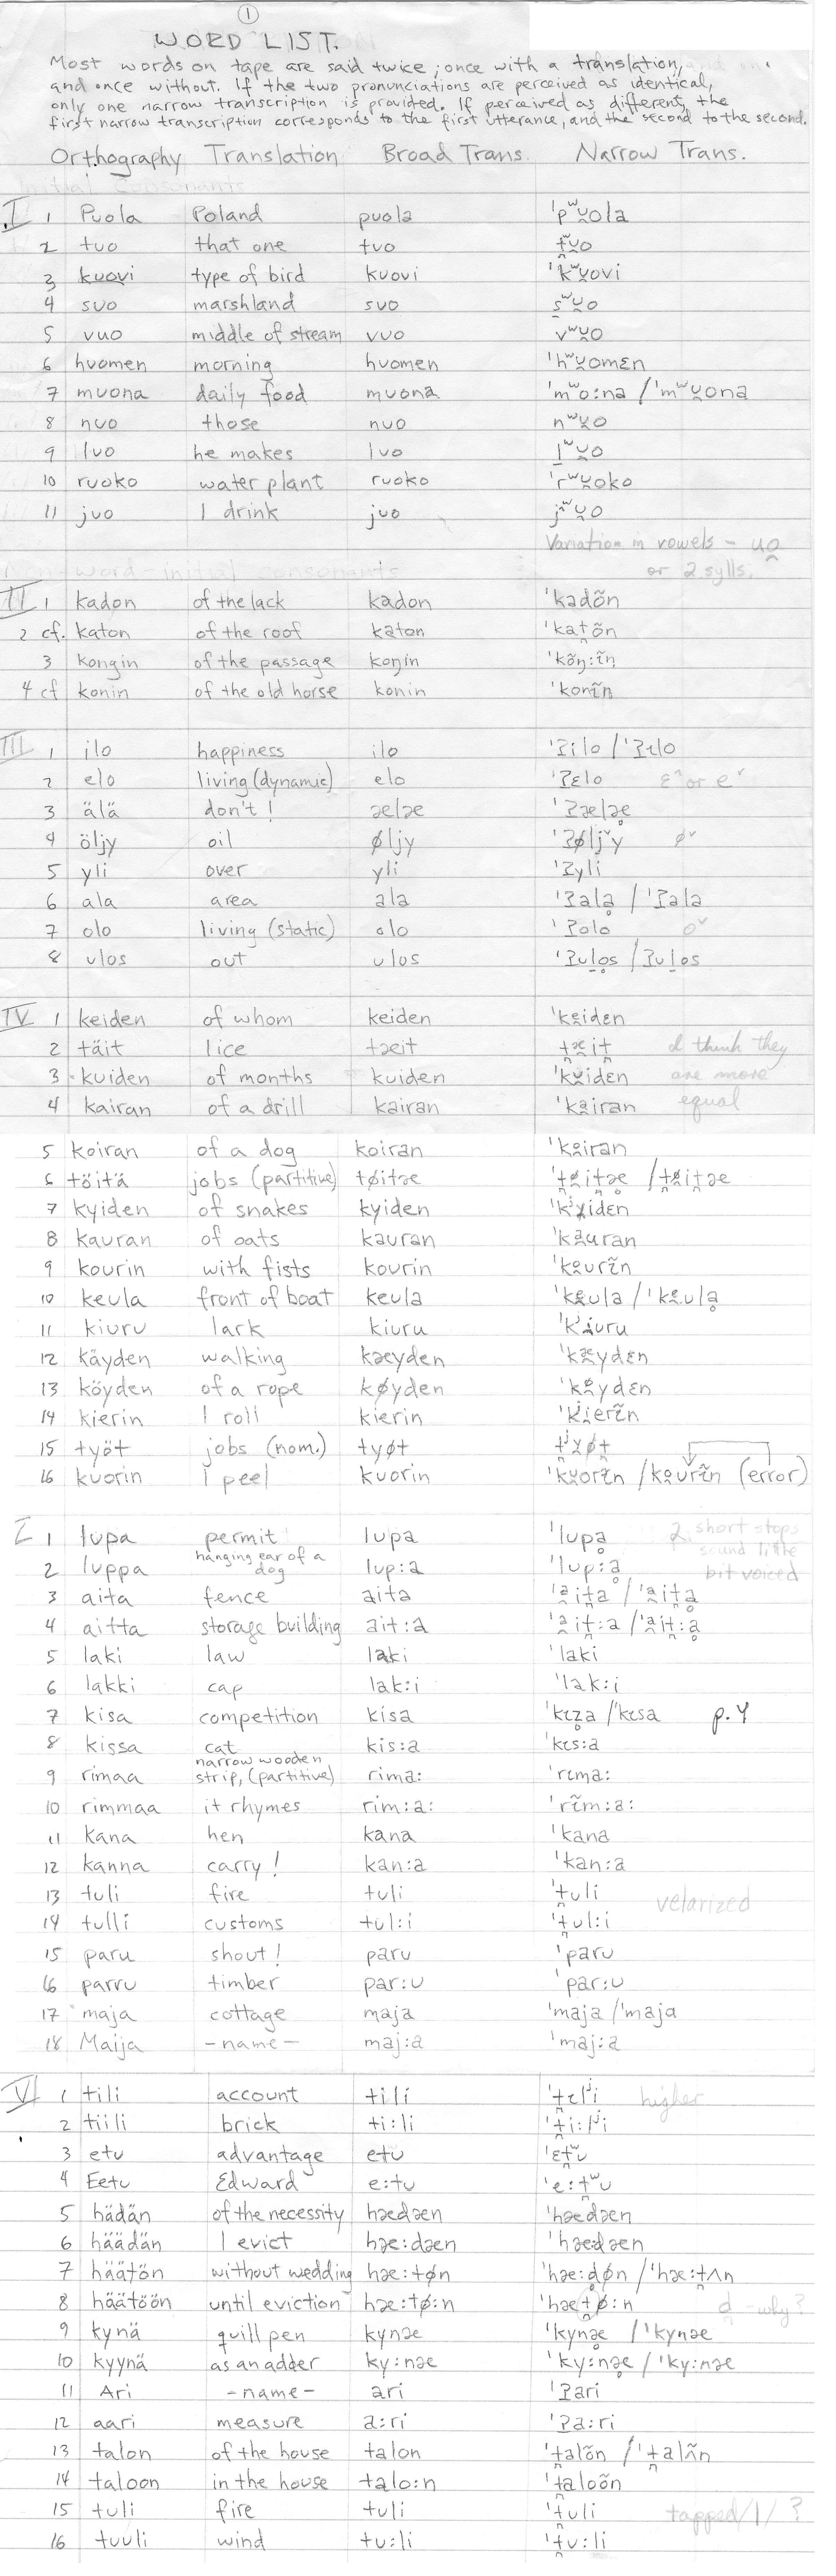 1
WORD LIST.
Most words on tape are said twice; once with a translation,
and once without. If the two pronunciations are perceived as identical,
only one narrow transcription is provided. If perceived as different, the
first narrow transcription corresponds to the first utterance, and the second to the second.
Orthography Translation Broad Trans. Narrow Trans.
Initial Consonants
I 1 Puola Poland puola ˈpʷu̯ola
2 tuo that one tuo t̪ʷu̯o
3 kuovi type of bird kuovi ˈkʷu̯ovi
4 suo marshland suo s̠ʷu̯o
5 vuo middle of stream vuo vʷu̯o
6 huomen morning huomen ˈhʷu̯omɛn
7 muona daily food muona ˈmʷo:na / ˈmʷu̯ona
8 nuo those nuo nʷu̯o
9 luo he makes luo l̠ʷu̯o
10 ruoko water plant ruoko ˈrʷu̯oko
11 juo I drink juo jʷu̯o
Variation in vowels - uo̯
or 2 sylls.
Non-word-initial consonants
II 1 kadon of the lack kadon ˈkadõn
2 cf. katon of the roof katon ˈkat̪õn
3 kongin of the passage koŋin ˈkõŋ:ĩn
4 cf konin of the old horse konin ˈkonĩn
III 1 ilo happiness ilo ˈʔilo / ˈʔɩlo
2 elo living (dynamic) elo ˈʔɛlo ɛ^ or eˇ
3 älä don't! ælæ ˈʔælæ̥
4 öljy oil øljy ˈʔøljˇy øˇ
5 yli over yli ˈʔyli
6 ala area ala ˈʔalḁ / ˈʔala
7 olo living (static) olo ˈʔolo oˇ
8 ulos out ulos ˈʔul̠o̥s / ʔul̠os
IV 1 keiden of whom keiden ˈke̯idɛn
2 täit lice tæit t̪æ̯it̪ I think they
3 kuiden of months kuiden ˈku̯idɛn are more
4 kairan of a drill kairan ˈka̯iran equal
5 koiran of a dog koiran ˈko̯iran
6 töitä jobs (partitive) tøitæ ˈt̪ø̯it̪æ̥ / t̪ø̯it̪æ
7 kyiden of snakes kyiden ˈkʲy̯idɛn
8 kauran of oats kauran ˈka̯uran
9 kourin with fists kourin ˈko̯urĩn
10 keula front of boat keula ˈke̯ula / ˈke̯ulḁ
11 kiuru lark kiuru ˈkʲi̯uru
12 käyden walking kæyden ˈkæ̯ydɛn
13 köyden of a rope køyden ˈkø̯ydɛn
14 kierin I roll kierin ˈkʲi̯erĩn
15 työt jobs (nom.) tyøt t̪ʲy̯øt̪
16 kuorin I peel kuorin ˈku̯orĩn / ko̯urĩn (error)
I 1 lupa permit lupa ˈlupḁ 2 short stops
2 luppa hanging ear of a dog lup:a ˈlup:ḁ sound little
bit voiced
3 aita fence aita ˈa̯it̪a / ˈa̯it̪ḁ
4 aitta storage building ait:a ˈa̯it̪:a / ˈa̯it̪:ḁ
5 laki law laki ˈlaki
6 lakki cap lak:i ˈlak:i
7 kisa competition kisa ˈkɩz̥a / ˈkɩsa p. 4
8 kissa cat kis:a ˈkɩs:a
9 rimaa narrow wooden strip, (partitive) rima: ˈrɩma:
10 rimmaa it rhymes rim:a: ˈrɩ̃m:a:
11 kana hen kana ˈkana
12 kanna carry! kan:a ˈkan:a
13 tuli fire tuli ˈt̪uli velarized
14 tulli customs tul:i ˈt̪ul:i
15 paru shout! paru ˈparu
16 parru timber par:u ˈpar:u
17 maja cottage maja ˈmaja / ˈmaja
18 Maija -name- maj:a ˈmaj:a
VI 1 tili account tili ˈt̪ɩlʲi higher
2 tiili brick ti:li ˈt̪i:lʲi
3 etu advantage etu ˈɛt̪ʷu
4 Eetu Edward e:tu ˈe:t̪ʷu
5 hädän of the necessity hædæn ˈhædæn
6 häädän I evict hæ:dæn ˈhædæn
7 häätön without wedding hæ:tøn ˈhæ:d̥øn / ˈhæ:t̪ʌn
8 häätöön until eviction hæ:tø:n ˈhæt̪ø:n d̪ -why?
9 kynä quill pen kynæ ˈkynæ̥ / ˈkynæ
10 kyynä as an adder ky:næ ˈky:næ̥ / ˈky:næ
11 Ari -name- ari ˈʔari
12 aari measure a:ri ˈʔa:ri
13 talon of the house talon ˈt̪alõn / ˈt̪alʌ̃n
14 taloon in the house talo:n ˈt̪aloõn
15 tuli fire tuli ˈt̪uli tapped /l/ ?
16 tuuli wind tu:li ˈt̪u:li